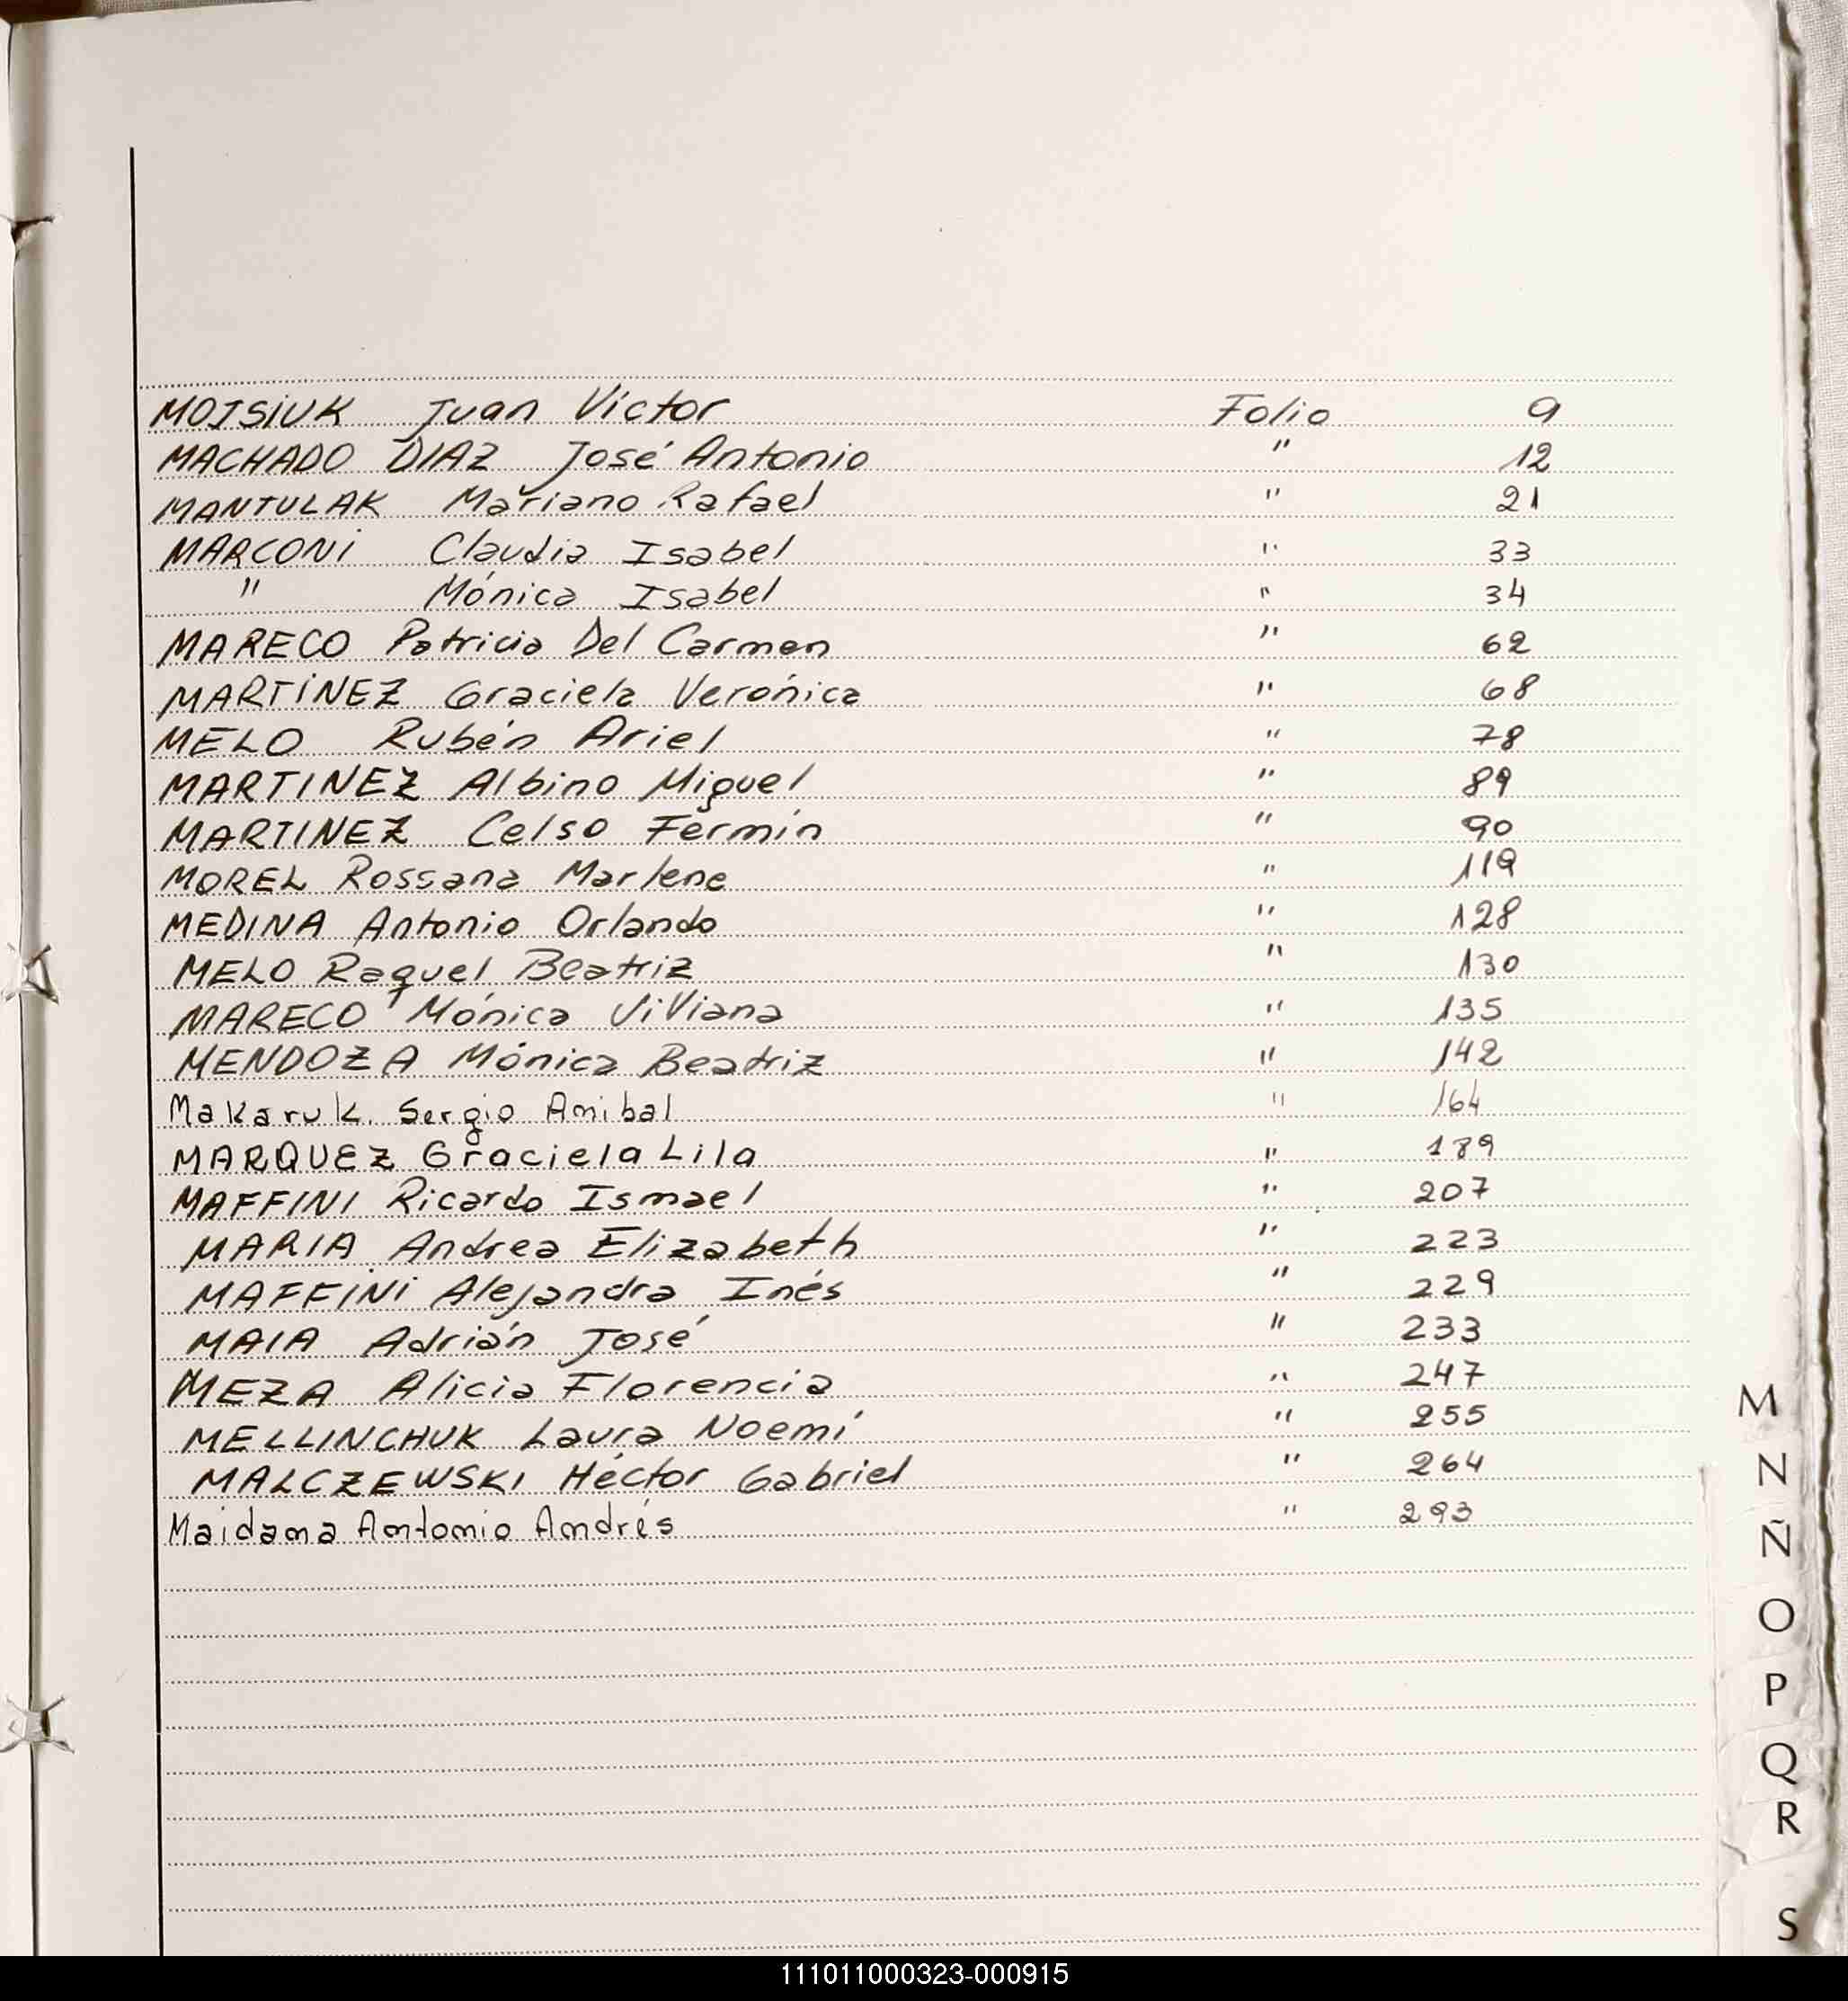 MOJSIUK Juan Víctor Folio 9
MACHADO DIAZ José Antonio " 12
MANTULAK Mariano Rafael " 21
MARCONI Claudia Isabel " 33
" Mónica Isabel " 34
MARECO Patricia Del Carmen " 62
MARTÍNEZ Graciela Verónica " 68
MELO Rubén Ariel " 78
MARTINEZ Albino Miguel " 89
MARTINEZ Celso Fermín " 90
MOREL Rossana Marlene " 119
MEDINA Antonio Orlando " 128
MELO Raquel Beatriz " 130
MARECO Mónica ViViana " 135
MENDOZA Mónica Beatriz " 142
Makaruk. Sergio Anibal " 164
MARQUEZ Graciela Lila " 189
MAFFINI Ricardo Ismael " 207
MARIA Andrea Elizabeth " 223
MAFFINI Alejandra Inés " 229
MAIA Adrián José " 233
MEZA Alicia Florencia " 247
MELLINCHUK Laura Noemí " 255
MALCZEWSKI Héctor Gabriel " 264
Maidana Antonio Andrés " 293
M
N
Ñ
O
P
Q
R
S
111011000323-000915